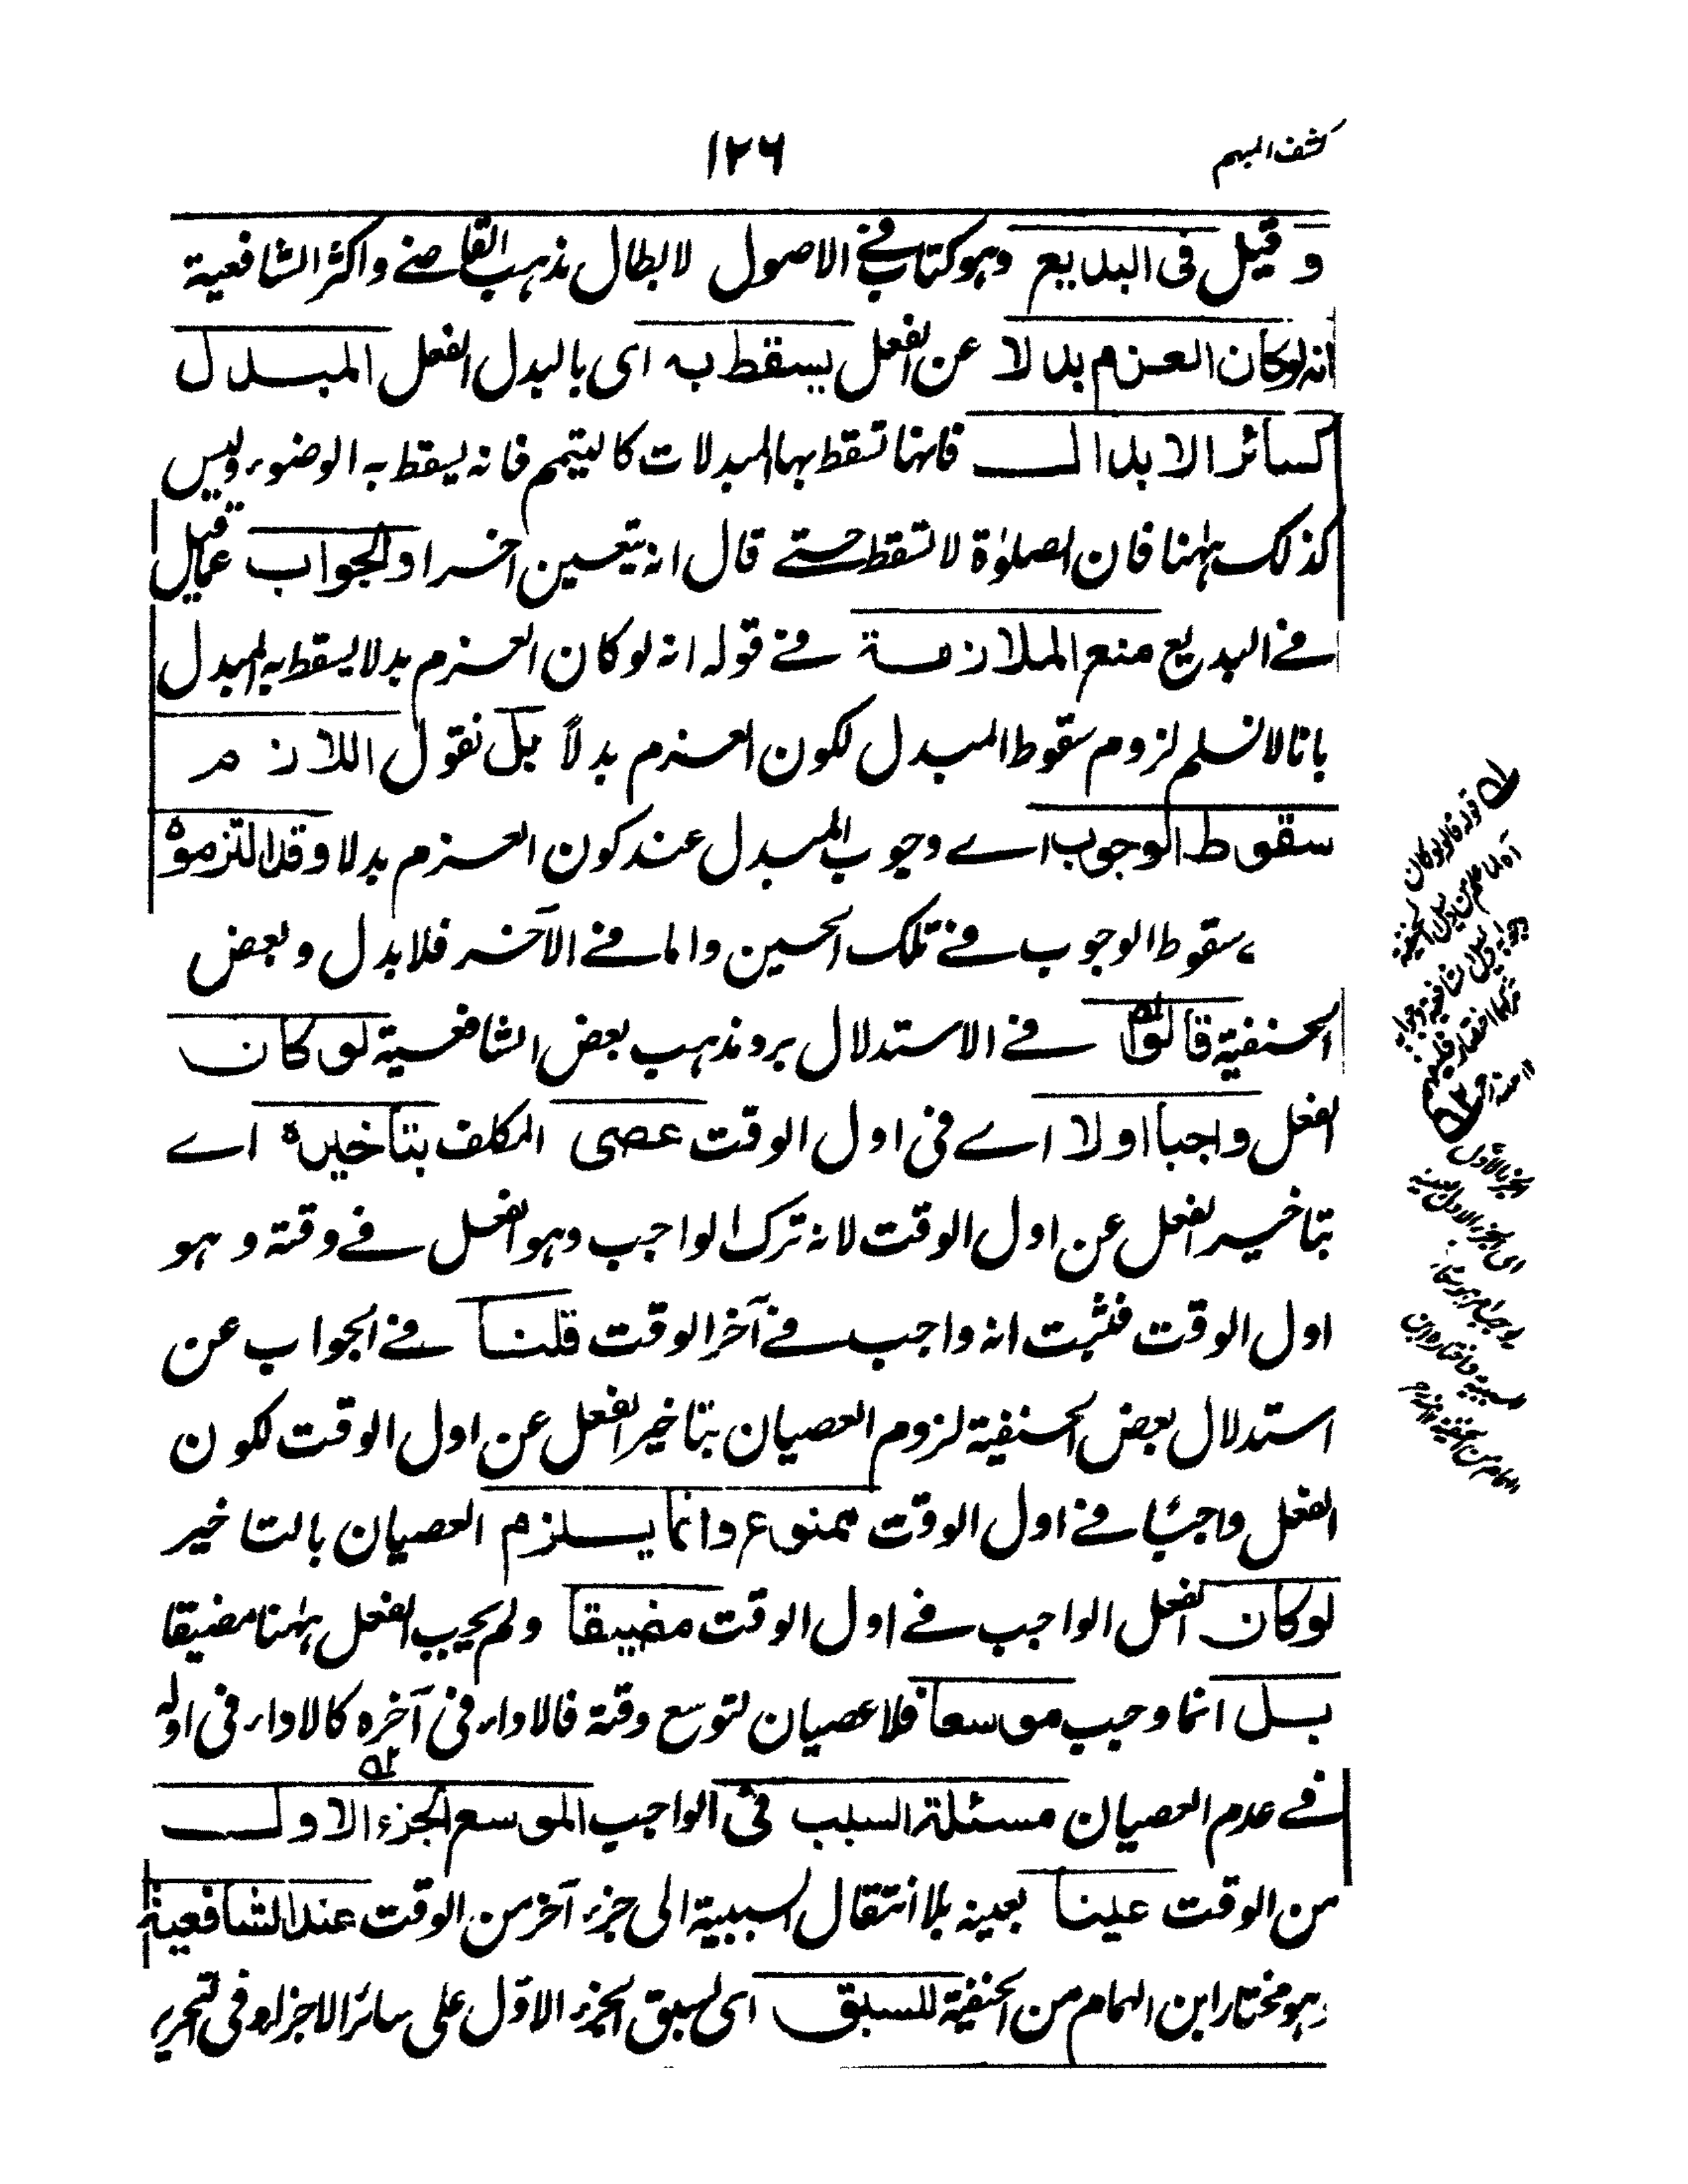 كشف المبهم
١٢٦
و قيل فى البديع وهو كتاب في الاصول لابطال مذهب القاضي واكثر الشافعية
انه لو كان العزم بدلا عن الفعل يسقط به اى بالبدل الفعل المبدل
كسائر الابدال فانها تسقط بها المبدلات كاليتمم فانه يسقط به الوضوء وليس
كذلك ههنا فان الصلوٰة لا تسقط حتے قال انه يتعين اخرا والجواب عما قيل
في البديع منع الملازمة في قوله انه لو كان العزم بدلا يسقط به المبدل
بانا لا نسلم لزوم سقوط المبدل لكون العزم بدلاً بل نقول اللازم
سقوط الوجوب اے وجوب المبدل عند كون العزم بدلا وقد التزموه
ے سقوط الوجوب في تلك الحين واما في الآخر فلا بدل وبعض
الحنفية قالوا في الاستدلال برد مذهب بعض الشافعية لو كان
الفعل واجبا اولا اے فى اول الوقت عصى المكلف بتاخيره اے
بتاخير الفعل عن اول الوقت لانه ترك الواجب وهو الفعل في وقته و هو
اول الوقت فثبت انه واجب في آخر الوقت قلنا في الجواب عن
استدلال بعض الحنفية لزوم العصيان بتاخير الفعل عن اول الوقت لكون
الفعل واجبًا في اول الوقت ممنوع وانما يلزم العصيان بالتاخير
لو كان الفعل الواجب في اول الوقت مضيقا ولم يجب الفعل ههنا مضيقا
بل انما وجب موسعا فلا عصيان لتوسع وقته فالاداء فى آخره كالاداء فى اوله
في عدم العصيان مسئلة السبب فى الواجب الموسع الجزء الاول
من الوقت عينا بعينه بلا انتقال السببية الى جزء آخر من الوقت عند الشافعية
وهو مختار ابن الهمام من الحنفية للسبق اى لسبق الجزء الاوّل على سائر الاجزاء وفى التحرير
قوله قالوا لو كان
الجزء الاول
اى الجزء الاول بعينه
السببية واختاره ابن
الهمام من الحنفية